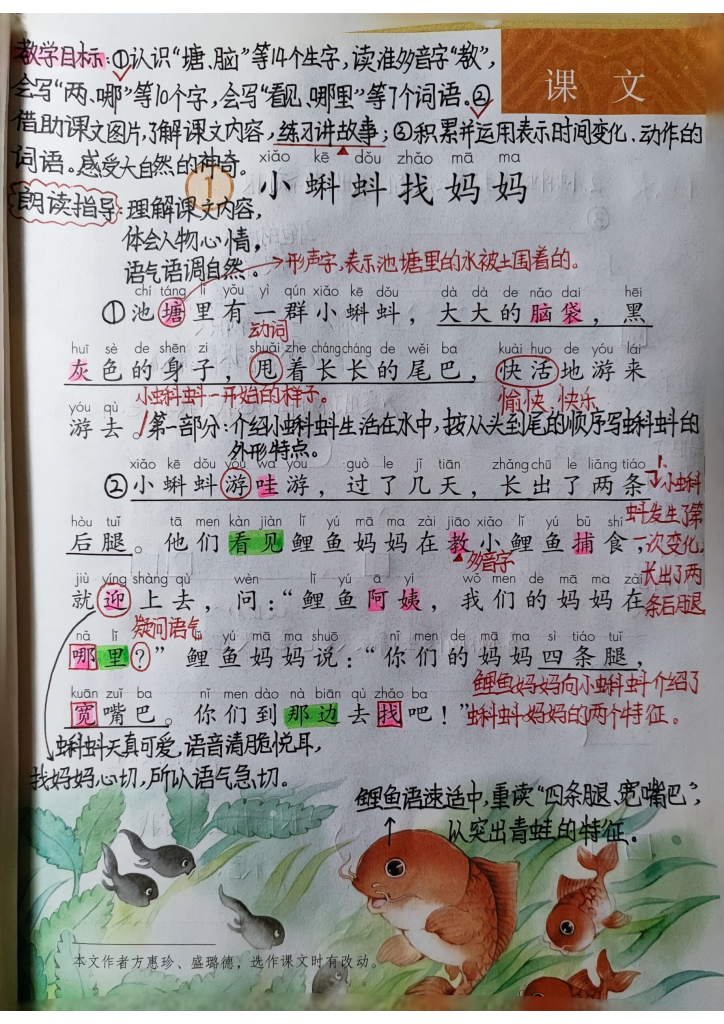 教学目标:①认识“塘、脑”等14个生字,读准多音字“教”,
会写“两、哪”等10个字,会写“看见、哪里”等7个词语。②
课 文
借助课文图片,了解课文内容,练习讲故事;③积累并运用表示时间变化、动作的
词语。感受大自然的神奇。
xiǎo kē dǒu zhǎo mā ma
1 小蝌蚪找妈妈
朗读指导:理解课文内容,
体会人物心情,
语气语调自然。
形声字,表示池塘里的水被土围着的。
chí táng lǐ yǒu yì qún xiǎo kē dǒu dà dà de nǎo dai hēi
①池塘里有一群小蝌蚪,大大的脑袋,黑
动词
huī sè de shēn zi shuǎi zhe cháng cháng de wěi ba kuài huo de yóu lái
灰色的身子,甩着长长的尾巴,快活地游来
小蝌蚪一开始的样子。
愉快 快乐
yóu qù
游去。
第一部分:介绍小蝌蚪生活在水中,按从头到尾的顺序写蝌蚪的
外形特点。
xiǎo kē dǒu yóu wa yóu guò le jǐ tiān zhǎng chū le liǎng tiáo
②小蝌蚪游哇游,过了几天,长出了两条
小蝌蚪
蚪发生了第
一次变化,
长出了两
条后腿
hòu tuǐ tā men kàn jiàn lǐ yú mā ma zài jiāo xiǎo lǐ yú bǔ shí
后腿。他们看见鲤鱼妈妈在教小鲤鱼捕食,
多音字
jiù yíng shàng qù wèn lǐ yú ā yí wǒ men de mā ma zài
就迎上去,问:“鲤鱼阿姨,我们的妈妈在
疑问语气
nǎ lǐ lǐ yú mā ma shuō nǐ men de mā ma sì tiáo tuǐ
哪里?”鲤鱼妈妈说:“你们的妈妈四条腿,
kuān zuǐ ba nǐ men dào nà biān qù zhǎo ba
宽嘴巴。你们到那边去找吧!”
鲤鱼妈妈向小蝌蚪介绍了
蝌蚪妈妈的两个特征。
蝌蚪天真可爱,语音清脆悦耳,
找妈妈心切,所以语气急切。
鲤鱼语速适中,重读“四条腿、宽嘴巴”,
以突出青蛙的特征。
本文作者方惠珍、盛璐德,选作课文时有改动。